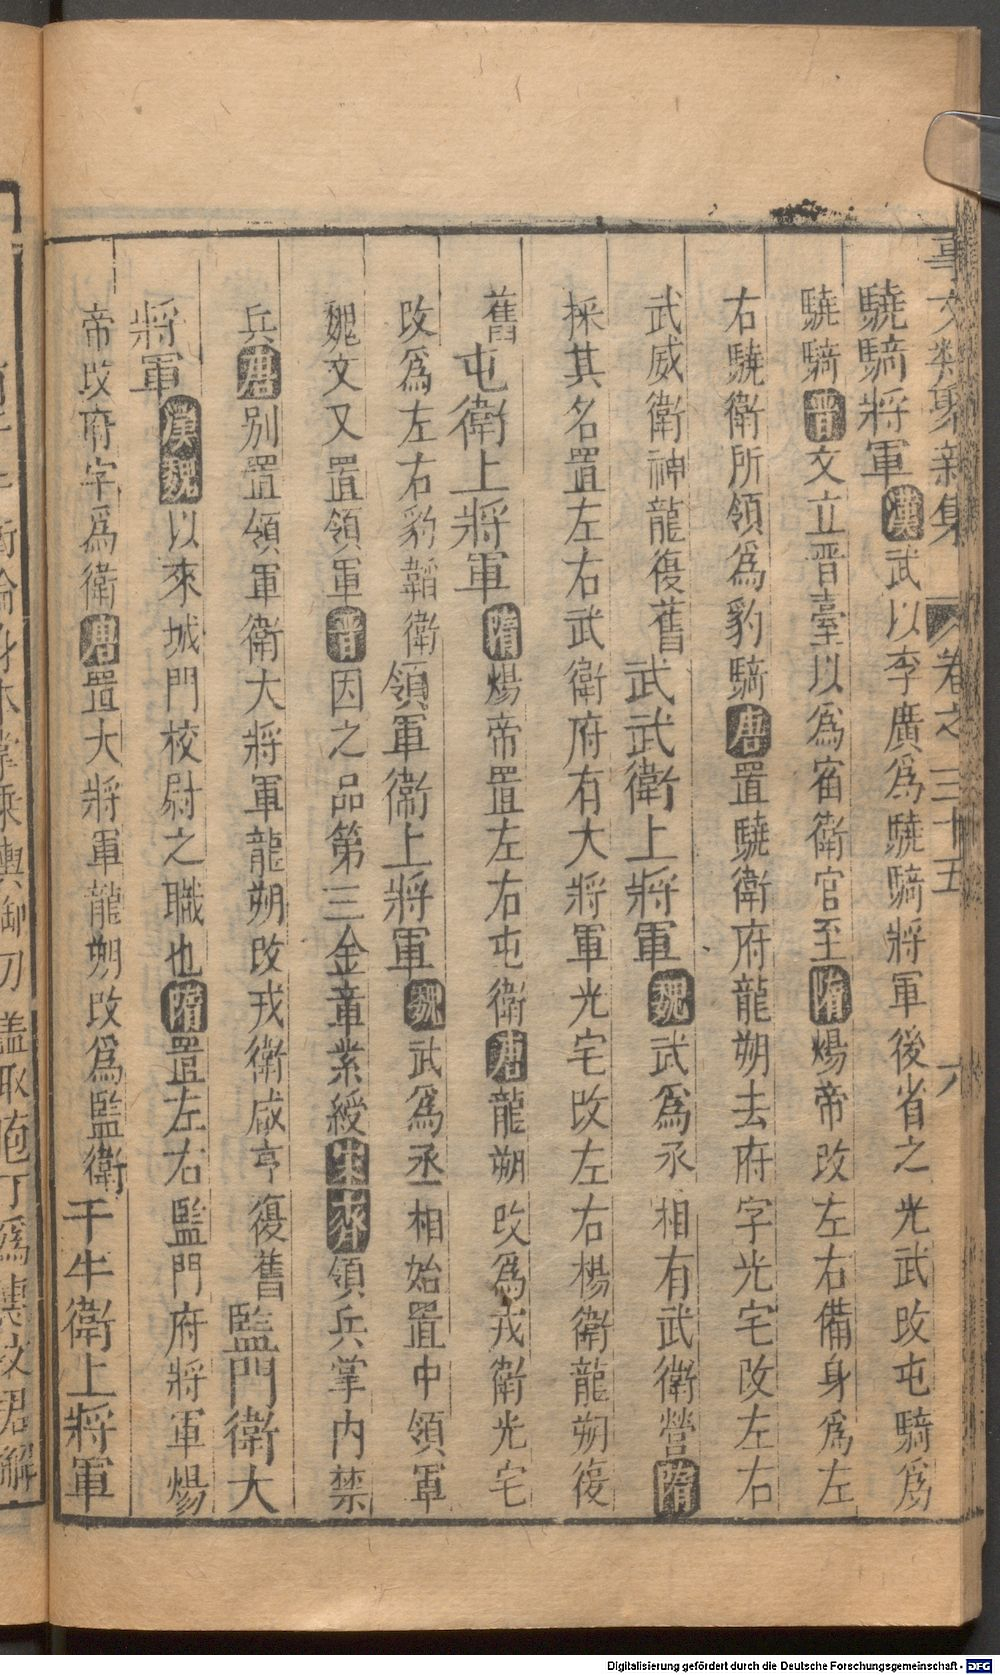 事文類聚新集 卷之三十五 六
驍騎將軍漢武以李廣爲驍騎將軍後省之光武改屯騎爲
驍騎晋文立晋臺以爲宿衛官至隋煬帝改左右備身爲左
右驍衛所領爲豹騎唐置驍衛府龍朔去府字光宅改左右
武威衛神龍復舊武武衛上將軍魏武爲丞相有武衛營隋
採其名置左右武衛府有大將軍光宅改左右楊衛龍朔復
舊屯衛上將軍隋煬帝置左右屯衛唐龍朔改爲戎衛光宅
改爲左右豹韜衛領軍衛上將軍魏武爲丞相始置中領軍
魏文又置領軍晋因之品第三金章紫綬宋齊領兵掌内禁
兵唐別置領軍衛大將軍龍朔改戎衛咸亨復舊監門衛大
將軍漢魏以來城門校尉之職也隋置左右監門府將軍煬
帝改府字爲衛唐置大將軍龍朔改爲監衛千牛衛上將軍
刀 盖取庖丁爲
Digitalisierung gefördert durch die Deutsche Forschungsgemeinschaft - DFG